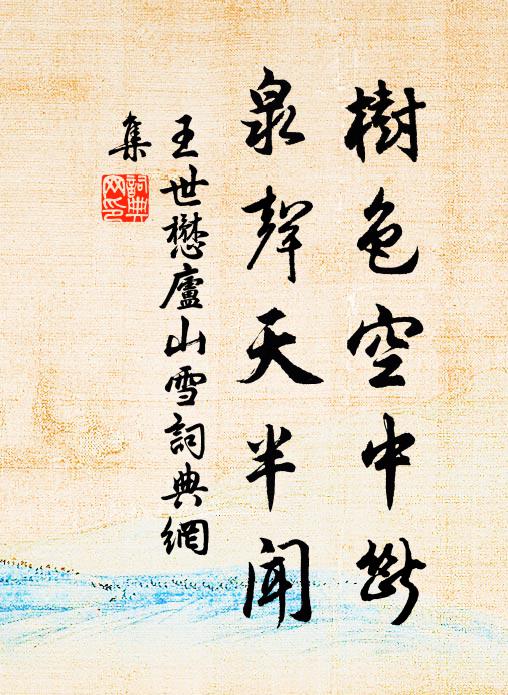 樹色空中斷
泉聲天半聞
王世懋廬山雪詞典網
集
詞典
网印